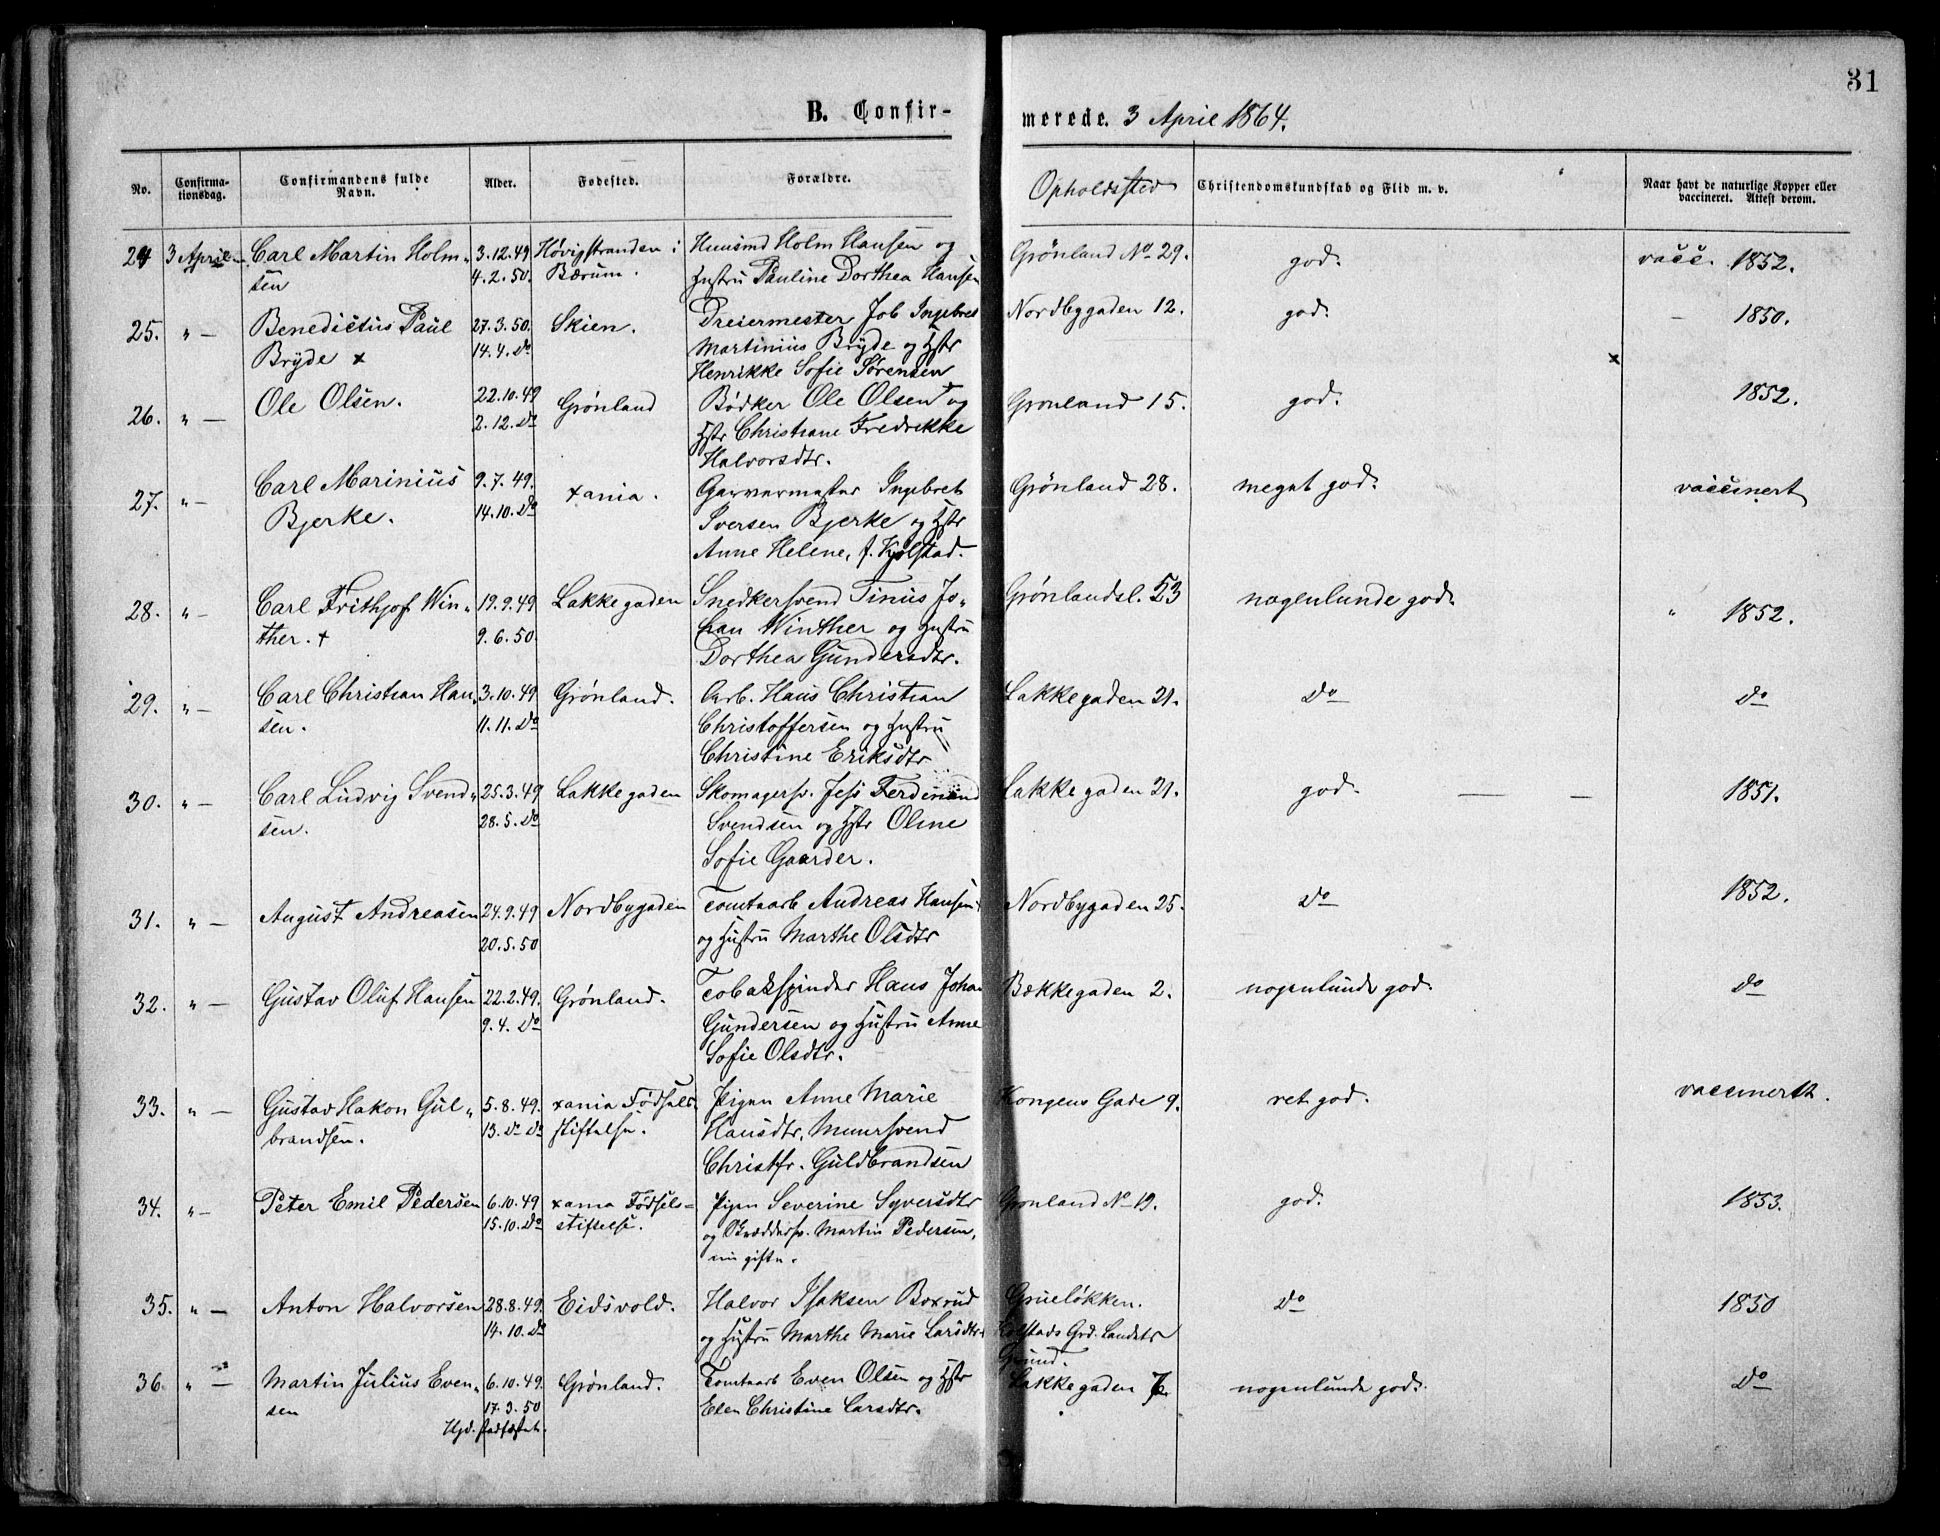 31
B. Confirmerede. 3 April 1864.
No. | Confirmationsdag. | Confirmandens fulde Navn. | Alder. | Fødested. | Forældre. | Opholdsted | Christendomskundskab og Flid m. v. | Naar havt de naturlige Kopper eller vaccineret. Attest derom.
24 3 April Carl Martin Holm- 3.12.49 Høvigstranden i Huusmd Holm Hansen og Grönland No 29. god. vacc. 1852.
sen 4.2.50. Bærum. Hustru Pauline Dorthea Hansen
25. „ — Benedictus Paul 27.3.50. Skien. Dreiermester Job Ingebret Nordbygaden 12. god. — 1850.
Bryde x 14.4. do Martinius Bryde og Hstr x
Henrikke Sofie Sørensen
26. „ — Ole Olsen. 22.10.49 Grønland Bødker Ole Olsen og Grønland 15. god. 1852.
2.12. do Hstr Christiane Fredrikke
Halvorsdtr.
27. „ — Carl Marinius 9.7.49. xania. Garvermester Ingebret Grönland 28. meget god. vaccinert
Bjerke. 14.10. do Iversen Bjerke og Hstr
Anne Helene, f. Kjølstad.
28. „ — Carl Frithjof Win- 19.9.49 Lakkegaden Snedkersvend Tinius Jo- Grønlandsl. 53 nogenlunde god. „ 1852.
ther. + 9.6.50. han Winther og Hustru
Dorthea Gundersdtr.
29. „ — Carl Christian Han- 3.10.49 Grønland. Arb. Hans Christian Lakkegaden 21. do do
sen. 11.11. do Christoffersen og Hustru
Christine Eriksdtr
30. „ — Carl Ludvig Svend- 25.3.49 Lakkegaden Skomagersv. Jess Ferdinand Lakkegaden 21. god. — — 1851.
sen. 28.5. do Svendsen og Hstr Oline
Sofie Gaarder.
31. „ — August Andreasen 24.9.49 Nordbygaden Tomtearb Andreas Hansen Nordbygaden 25. do 1852.
20.5.50 og Hustru Marthe Olsdtr
32. „ — Gustav Oluf Hansen 22.2.49. Grønland. Tobakspinder Hans Johan Bækkegaden 2. nogenlunde god. do
9.4. do Gundersen og Hustru Anne
Sofie Olsdtr.
33. „ — Gustav Hakon Gul- 5.8.49. xania Fødsels- Pigen Anne Marie Kongens Gade 9. ret god. vaccinert
brandsen. 13. do do stiftelse. Hansdtr, Muursvend
Christfr. Guldbrandsen
34. „ — Peter Emil Pedersen 6.10.49 xania Fødsels- Pigen Severine Syversdtr Grønland No 19. god. 1853.
15.10. do stiftelse. og Martin Pedersen,
nu gifte.
35. „ — Anton Halvorsen 28.8.49. Eidsvold. Halvor Isaksen Boxrud Grueløkken. do 1850
14.10. do og Hustru Marthe Marie Larsdtr Kolstads Grd. Landets
Grund.
36. „ — Martin Julius Even- 6.10.49. Grønland. Tomtearb Even Olsen og Hstr Lakkegaden 7 nogenlunde god. do
sen 17.3.50 Elen Christine Larsdtr.
Hjd. stadfæstet.